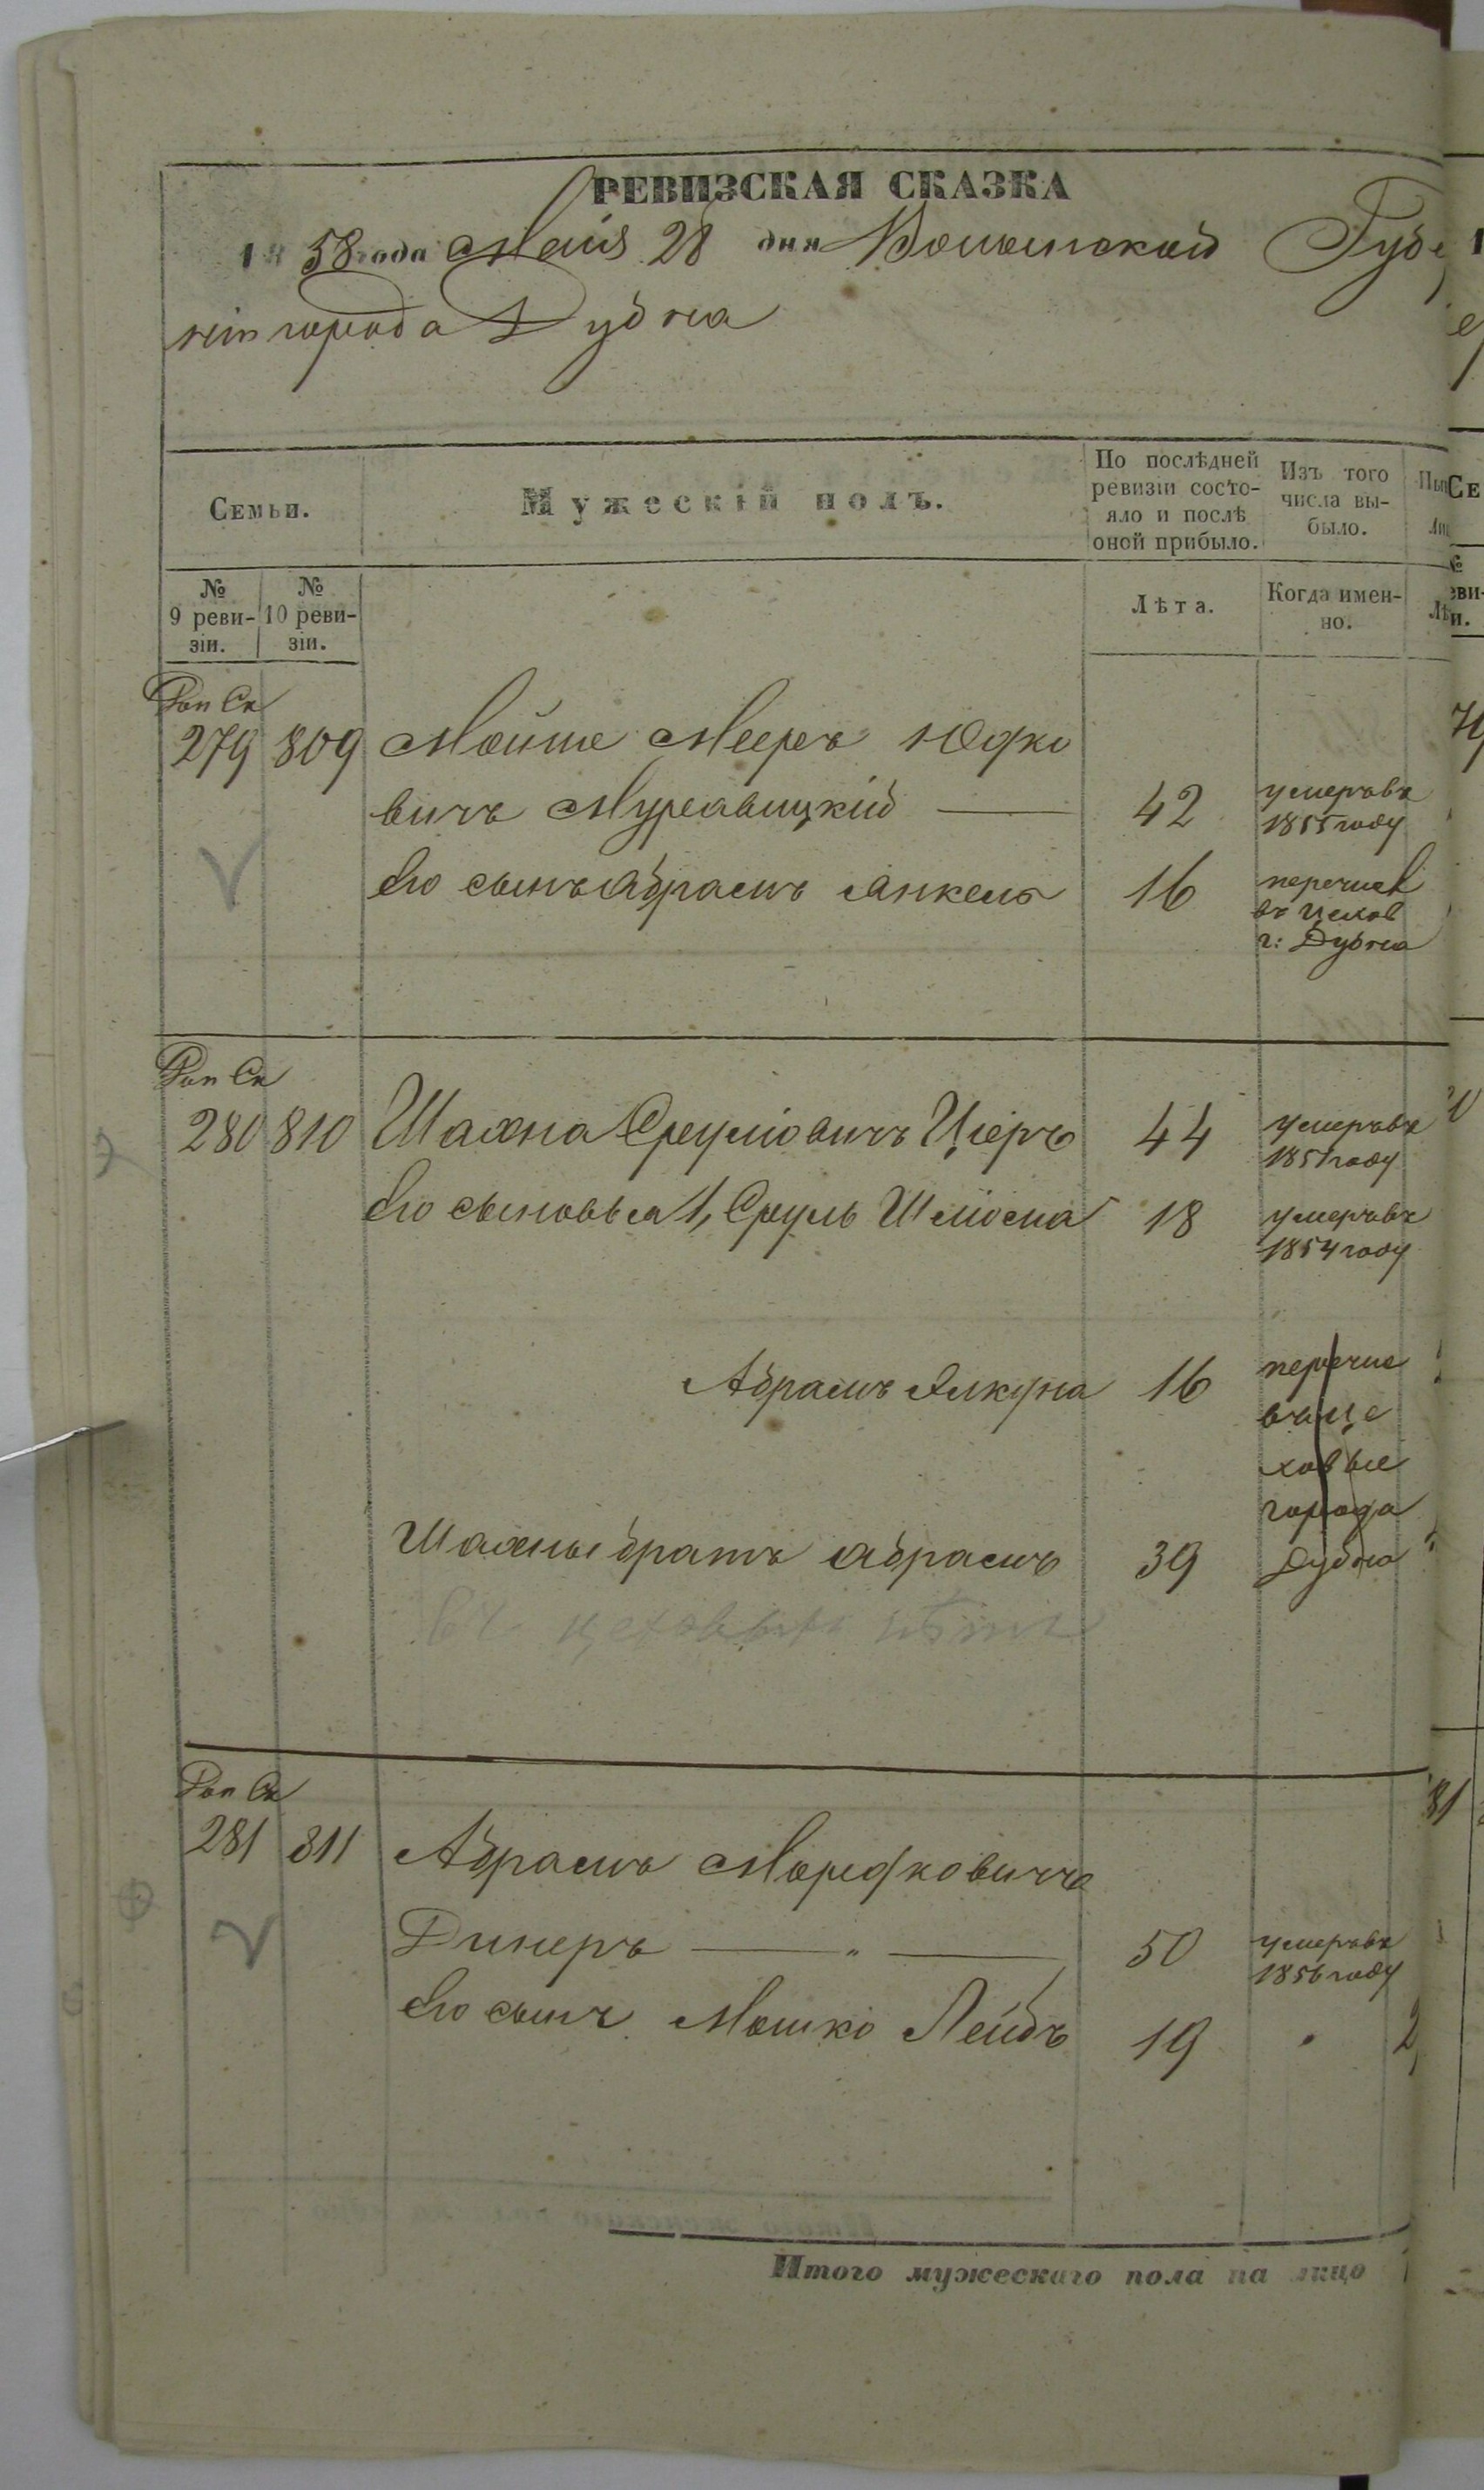 РЕВИЗСКАЯ СКАЗКА
1858 года Маія 28 дня Волынской Губер
ніи города Дубна
Семьи.
Мужескій полъ.
По послѣдней ревизіи состо-
яло и послѣ оной прибыло.
Изъ того числа вы-
было.
№ 9 реви-
зіи.
№ 10 реви-
зіи.
Лѣта.
Когда имен-
но.
279 809 Мойше Мееръ Юдко
вичъ Муравицкій — 42 умеръ въ
1855 году
Его сынъ Абрамъ Янкель 16 перечис
въ цехов
г: Дубна
280 810 Шахна Сруліовичъ Церъ 44 умеръ въ
1851 году
Его сыновья 1, Сруль Шліома 18 умеръ въ
1854 году
Абрамъ 16 перечис
въ це
ховые
города
Дубна
Шахны братъ Абрамъ 39
въ цеховыхъ
281 811 Абрамъ Мордковичъ
Динеръ — „ — 50 умеръ въ
1856 году
Его сынъ Мошко Лейбъ 19
Итого мужескаго пола на лицо